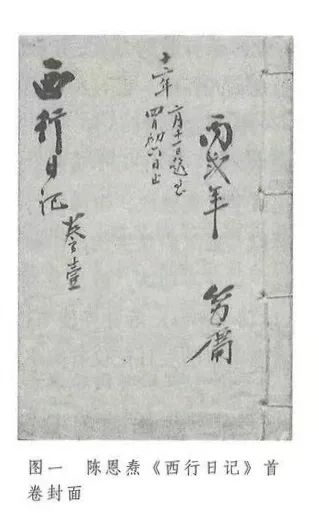 丙戌年
十二年
二月十一日起至
四月初六日止
西行日记 卷之壹
图一 陈恩焘《西行日记》首
卷封面